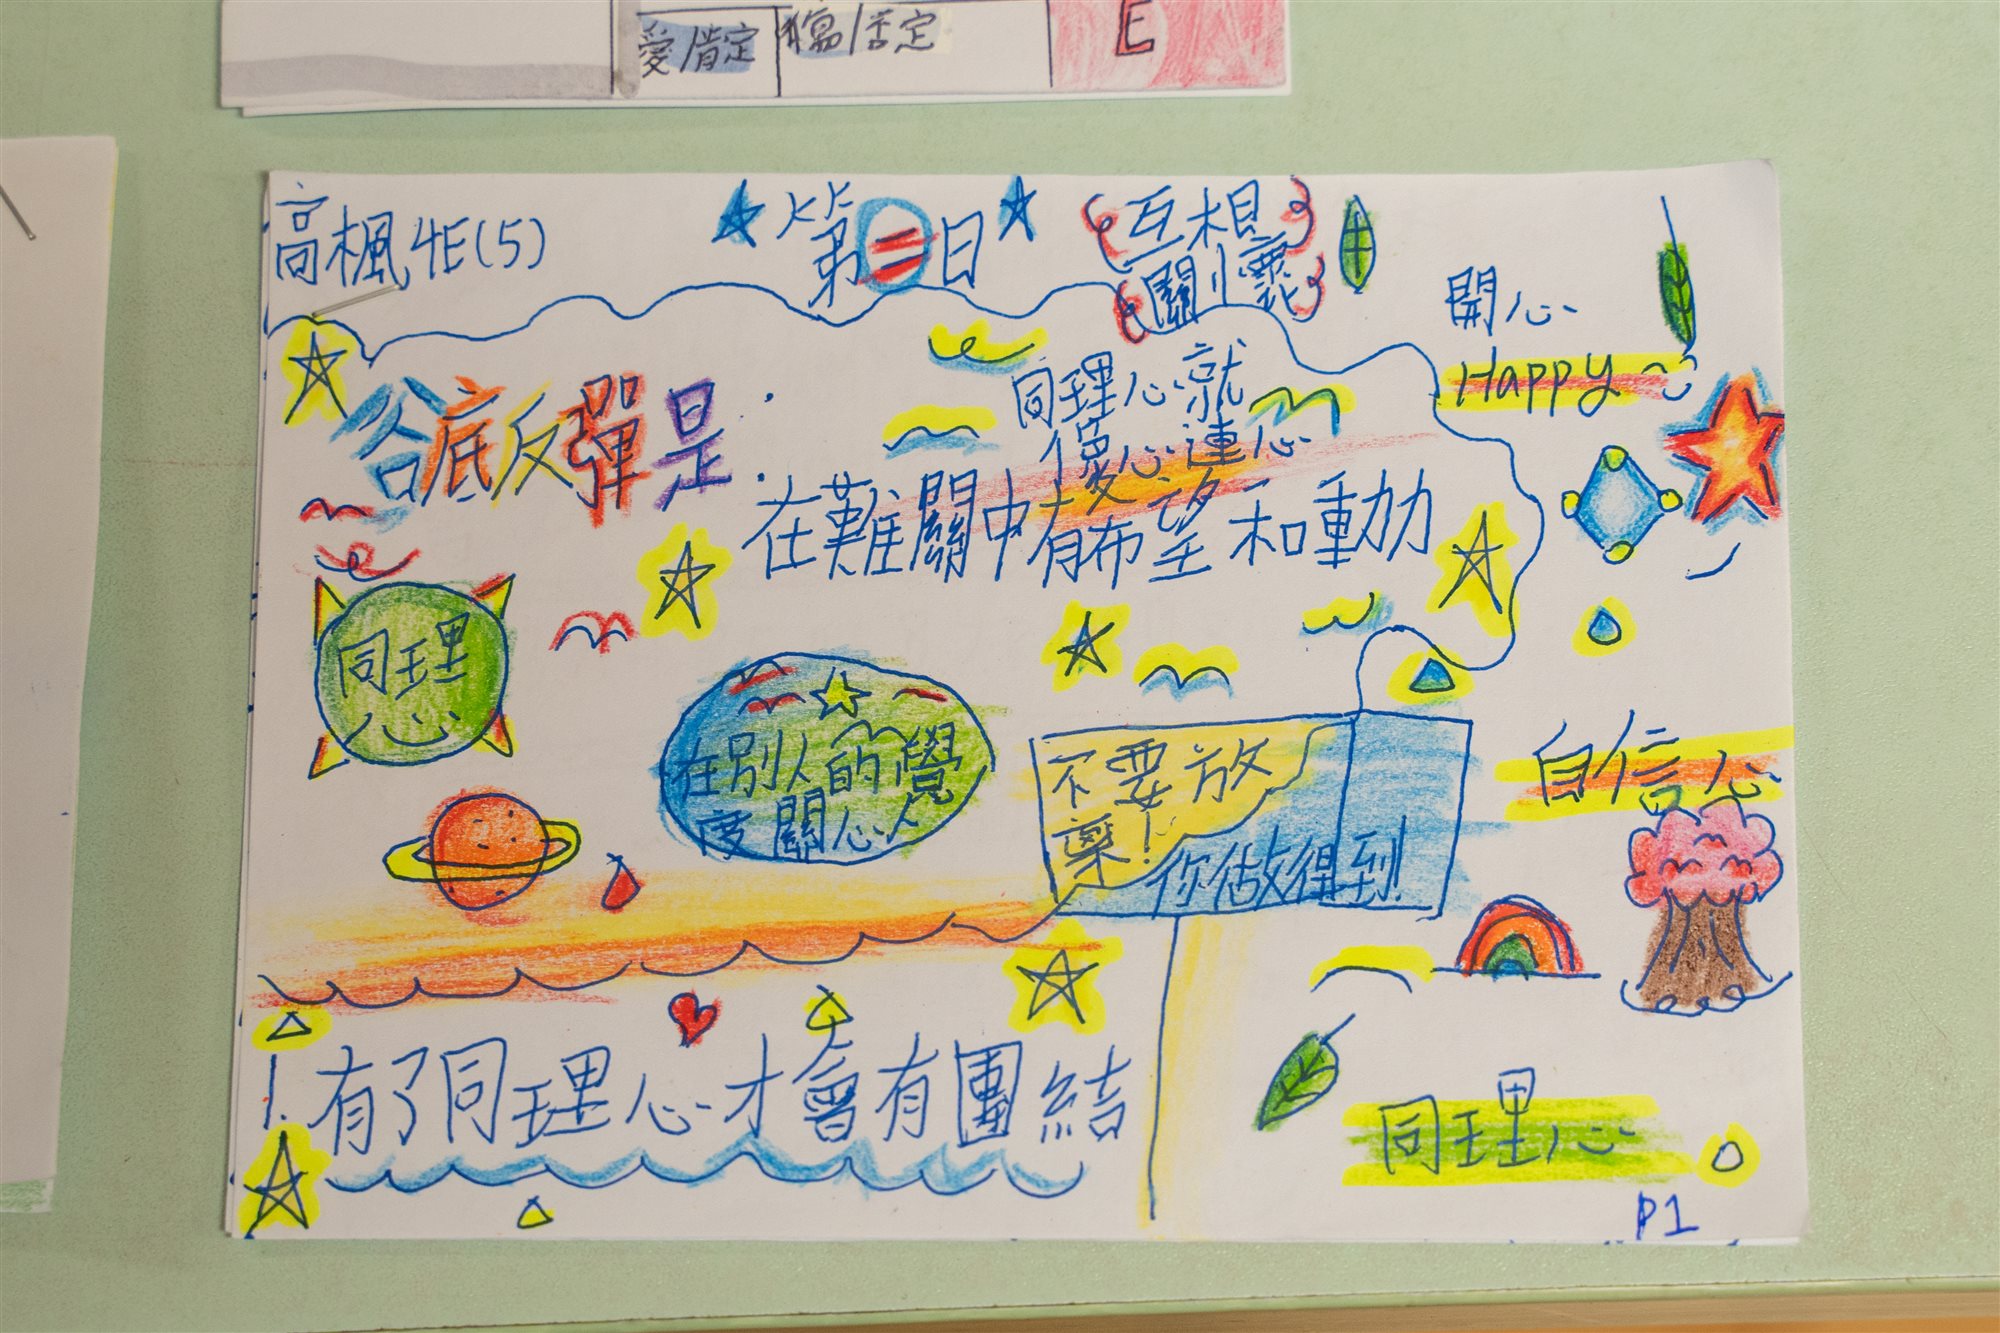 愛/肯定
傷/否定
E
高楓 4E(5)
第二日
互相
關懷
開心
Happy
谷底反彈是:
同理心就
像心連心
在難關中有希望和動力
同理
心
在別人的角度
度關心人
不要放
棄!
你做得到!
自信心
1.有了同理心才會有團結
同理心
P1